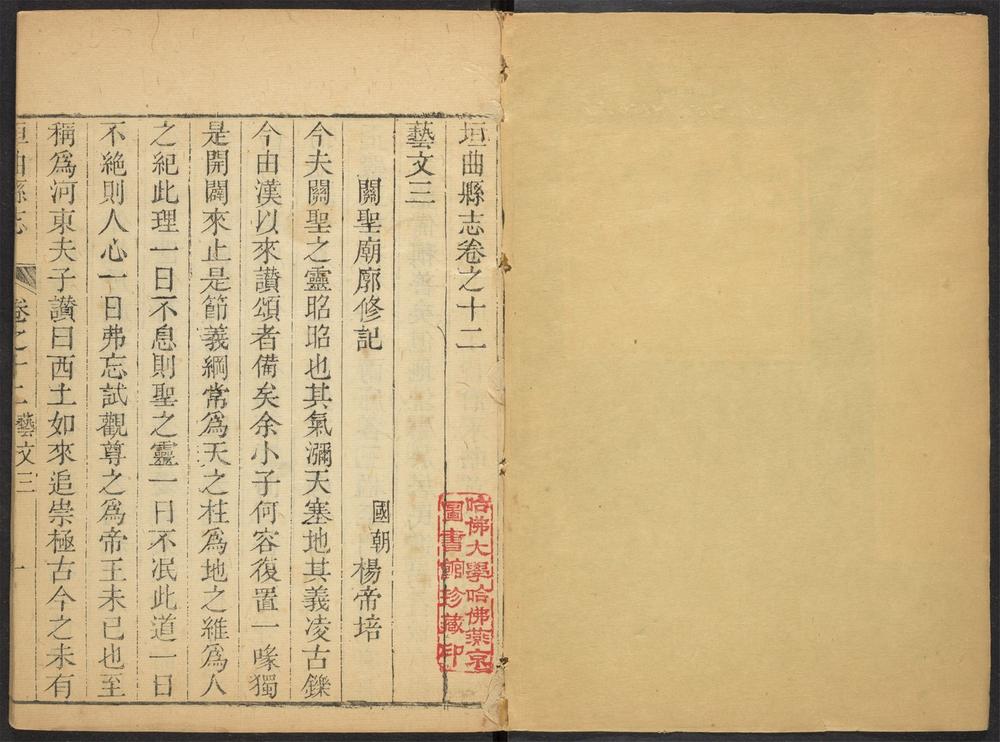 垣曲縣志卷之十二
藝文三
關聖廟廓修記
國朝 楊帝培
今夫關聖之靈昭昭也其氣瀰天塞地其義凌古鑠
今由漢以來讃頌者備矣余小子何容復置一喙獨
是開闢來止是節義綱常為天之柱為地之維為人
之紀此理一日不息則聖之靈一日不泯此道一日
不絶則人心一日弗忘試觀尊之為帝王未已也至
稱為河東夫子讃曰西土如來追崇極古今之未有
垣曲縣志 卷之十二 藝文三 一
哈佛大學哈佛燕京
圖書館珍藏印